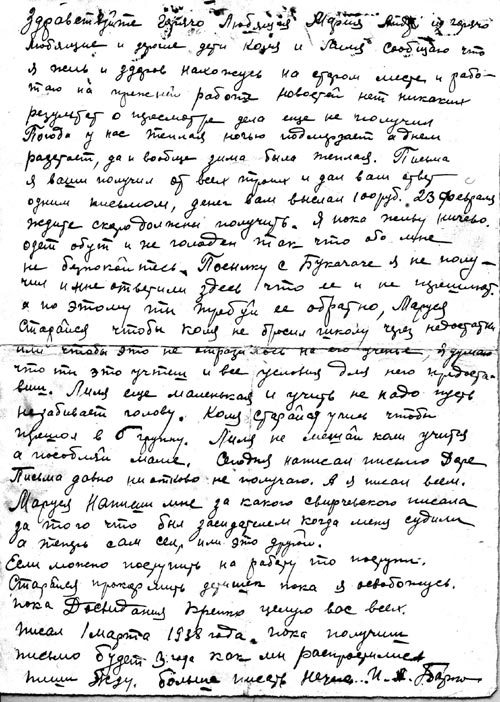 Здравствуйте горячо Любящая Маруся
любящие и дорогие дети Коля и Лиля сообщаю что
я жив и здоров нахожусь на старом месте и рабо-
таю на прежней работе новостей нет никаких
результат о пресмотре дела еще не получил
Погода у нас теплая ночью подмерзает а днем
разстает, да и вообще зима была теплая. Письма
я ваши получил от всех троих и дал вам ответ
одним письмом, денег вам выслал 100 руб. 23 февраля
ждите скоро должны получить. Я пока живу ничево.
одет обут и не голоден так что обо мне
не безпокойтесь. Посылку с Букачачи я не полу-
чил и мне ответили здесь что ее и не
а по этому ти требуй ее обратно, Маруся
Старайся чтобы коля не бросил школу через недостатки
или чтобы это не отразилось на его ученье, я думаю
что ти это учтеш и все условия для него предоста-
виш. Лиля еще маленькая и учить не надо пусть
незабивает голову. Коля старайся учись чтобы
прешол в 6 группу. Лиля не мешай коли учится
а пособляй маме. Сегодня написал письмо Даре
Письма давно ни отково не получаю. А я писал всем.
Маруся Напиши мне за какого свирчевского писала
за того что был заседателем когда меня судили
а теперь сам сел, или это другой.
Если можно поступить на работу то поступи.
Старайся прокормить детишек пока я освобожусь.
пока Досвидания Крепко целую вас всех.
писал 1 марта 1938 года. пока получиш
письмо будет 3 года как ми распростились
пиши Жду. больше писать нечего.. И. А.